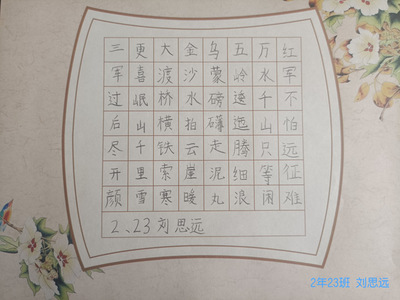 红军不怕远征难
万水千山只等闲
五岭逶迤腾细浪
乌蒙磅礴走泥丸
金沙水拍云崖暖
大渡桥横铁索寒
更喜岷山千里雪
三军过后尽开颜
2、23 刘思远
2年23班 刘思远